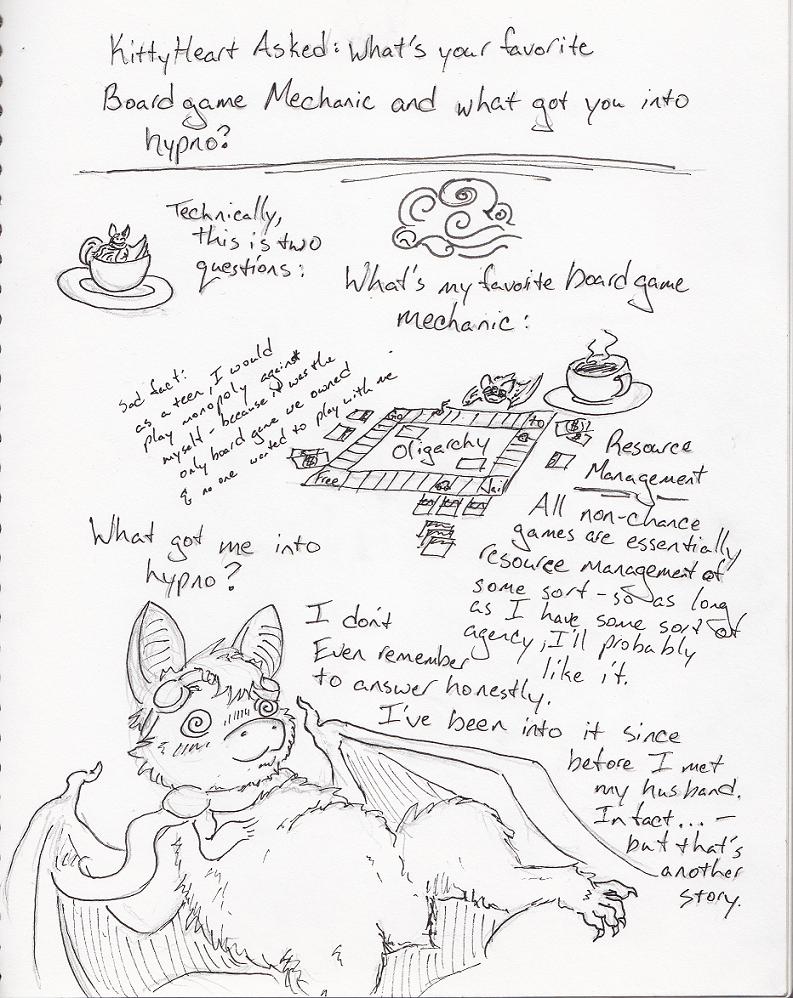 KittyHeart Asked: What's your favorite
Board game Mechanic and what got you into
hypno?
Technically,
this is two
questions:
What's my favorite board game
mechanic:
Sad fact:
as a teen, I would
play monopoly against
myself - because it was the
only board game we owned
& no one wanted to play with me
Go
To
Oligarchy
Free
Jail
Resource
Management
All non-chance
games are essentially
resource management of
some sort - so as long
as I have some sort of
agency, I'll probably
like it.
What got me into
hypno?
I don't
Even remember
to answer honestly.
I've been into it since
before I met
my husband.
In fact... -
but that's
another
story.